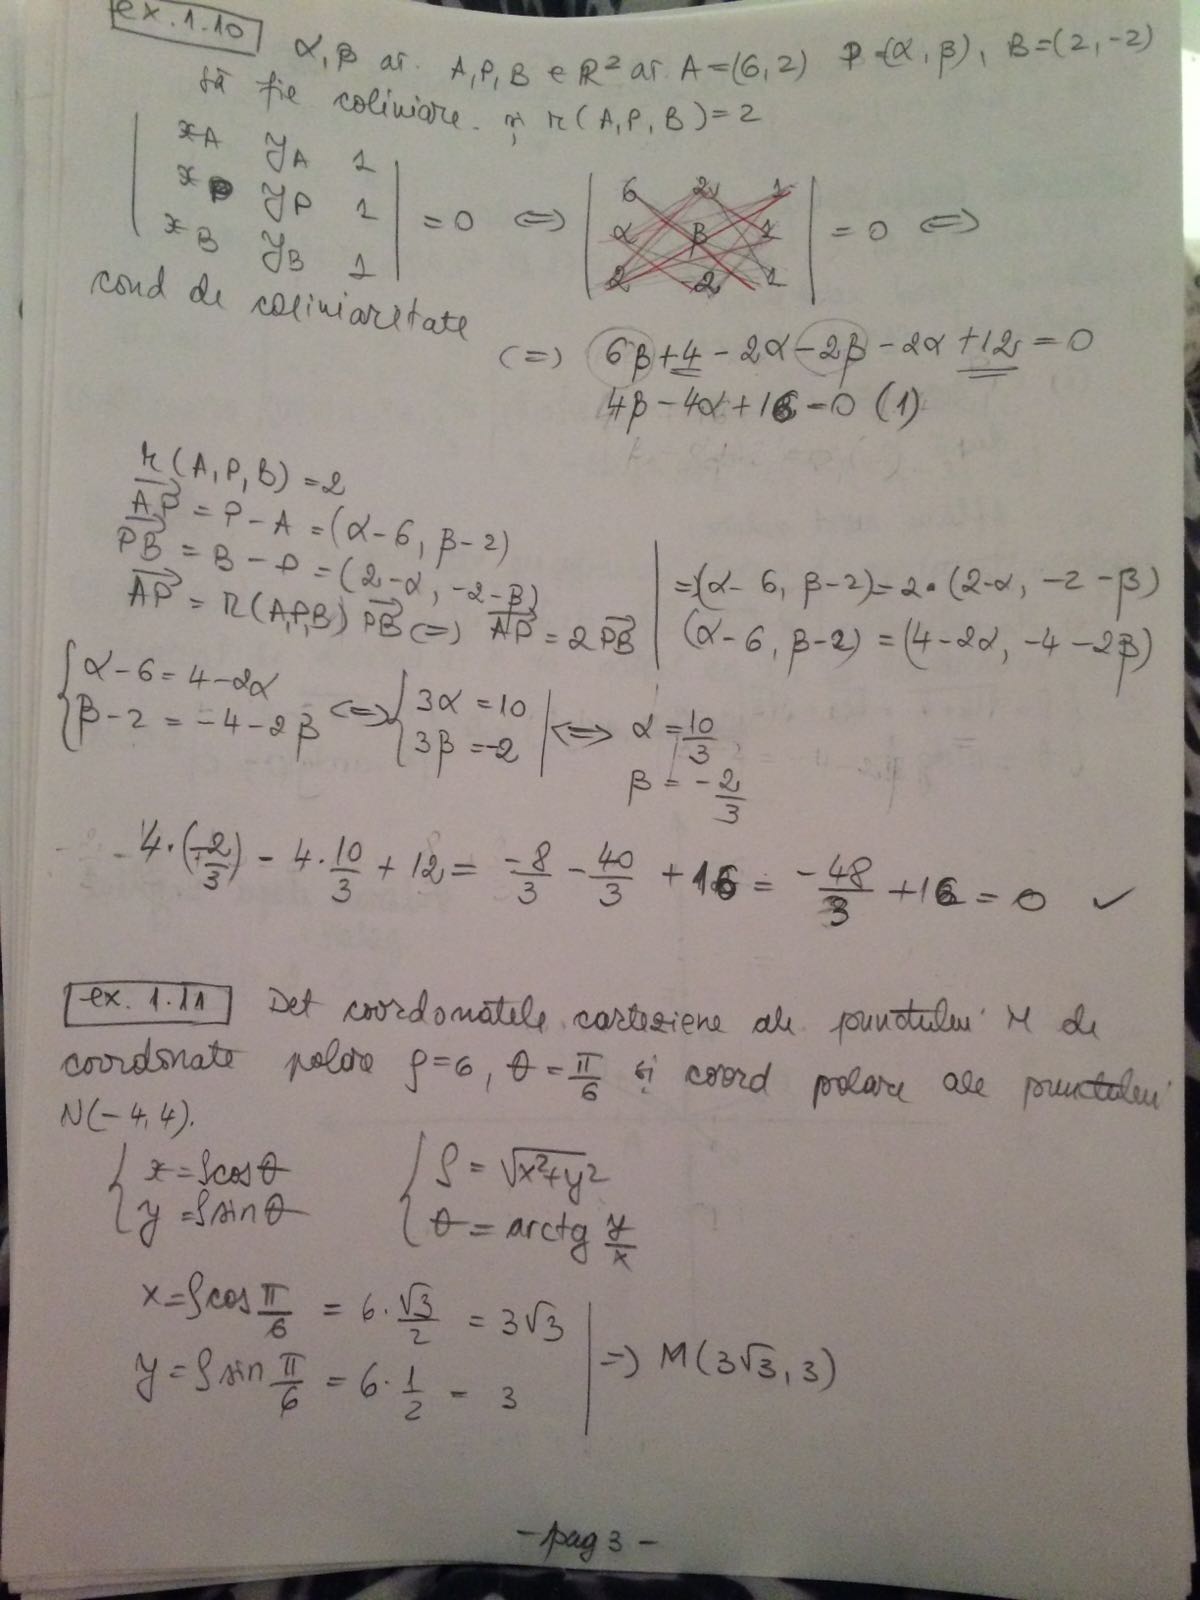 ex. 1.10
α, β aî. A, P, B ∈ ℝ² aî A=(6,2) P=(α, β), B=(2,-2)
să fie coliniare. și r(A, P, B)=2
| x_A y_A 1 |
| x_P y_P 1 | = 0 ⟺ | 6 2 1 ; α β 1 ; 2 -2 1 | = 0 ⟺
| x_B y_B 1 |
cond de coliniaritate
(=) 6β+4-2α-2β-2α+12=0
4β-4α+16=0 (1)
r(A, P, B)=2
AP = P-A = (α-6, β-2)
PB = B-P = (2-α, -2-β)
AP = r(A,P,B) PB (=) AP = 2PB
=(α-6, β-2)=2·(2-α, -2-β)
(α-6, β-2)=(4-2α, -4-2β)
{ α-6=4-2α
β-2=-4-2β ⟺ { 3α=10
3β=-2 | ⟺ α=10/3
β=-2/3
4·(-2/3) - 4·10/3 + 12 = -8/3 - 40/3 + 16 = -48/3 + 16 = 0 ✓
ex. 1.11 Det coordonatele carteziene ale punctului M de
coordonate polare ρ=6, θ=π/6 și coord polare ale punctului
N(-4,4).
{ x=ρcosθ
y=ρsinθ
{ ρ=√x²+y²
θ=arctg y/x
x=ρcos π/6 = 6·√3/2 = 3√3
y=ρsin π/6 = 6·1/2 = 3
=) M(3√3, 3)
-pag 3-